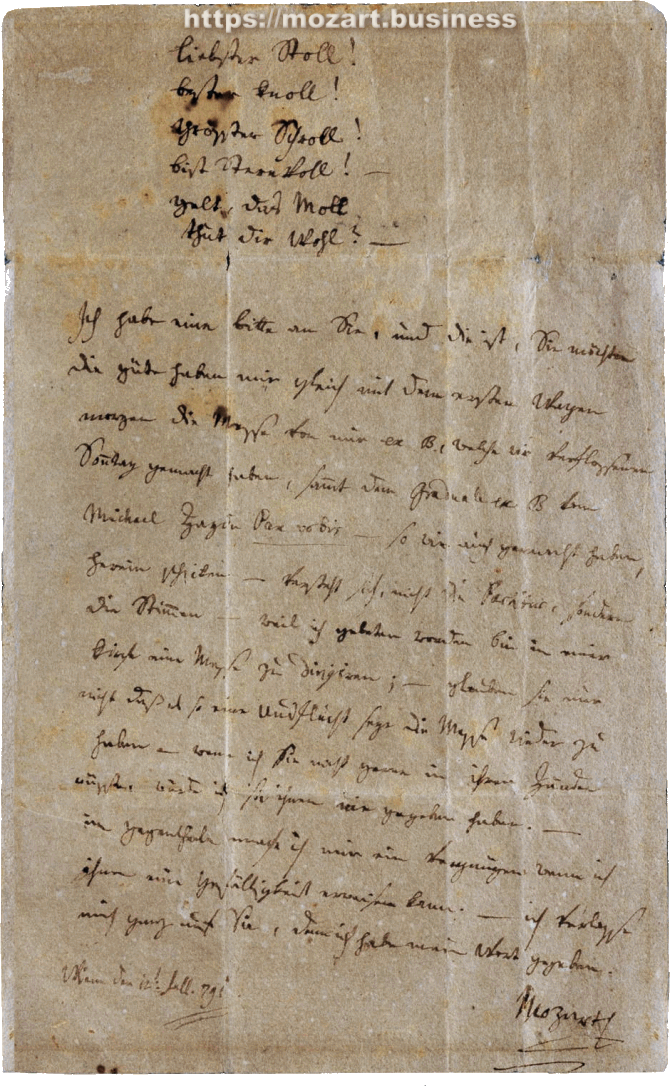 https://mozart.business
liebster Stoll!
bester knoll!
grösster Schroll!
bist Sternvoll! —
gelt, das Moll
thut dir Wohl? —
Ich habe eine bitte an Sie, und die ist, Sie möchten
die güte haben mir gleich mit dem ersten Wagen
morgen die Messe von mir ex B, welche wir verflossenen
Soñtag gemacht haben, sam̃t dem Graduale ex B vom
Michael Haydn Pax vobis — so wir auch gemacht haben,
herein schicken — versteht sich, nicht die Partitur, sondern
die Stim̃en — weil ich gebeten worden bin in einer
kirche eine Messe zu dirigiren; — glauben sie nur
nicht daß es so eine Ausflucht seye die Messe wieder zu
haben — wenn ich sie nicht gerne in ihren Händen
wüsste, würde ich sie ihnen nie gegeben haben. —
im gegentheile mache ich mir ein vergnügen wenn ich
ihnen eine gefälligkeit erweisen kann. — ich verlasse
mich ganz auf Sie, denn ich habe mein Wort gegeben.
Wienn den 12t: Jull. 791
Mozart